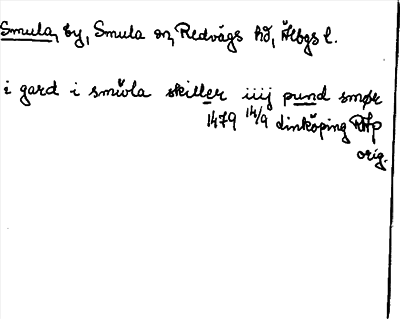 Smula, by, Smula sn, Redvägs hd, Älvbgs l.
i gard i smula skiller iiij pund smør
1479 14/9 Linköping RAp
orig.